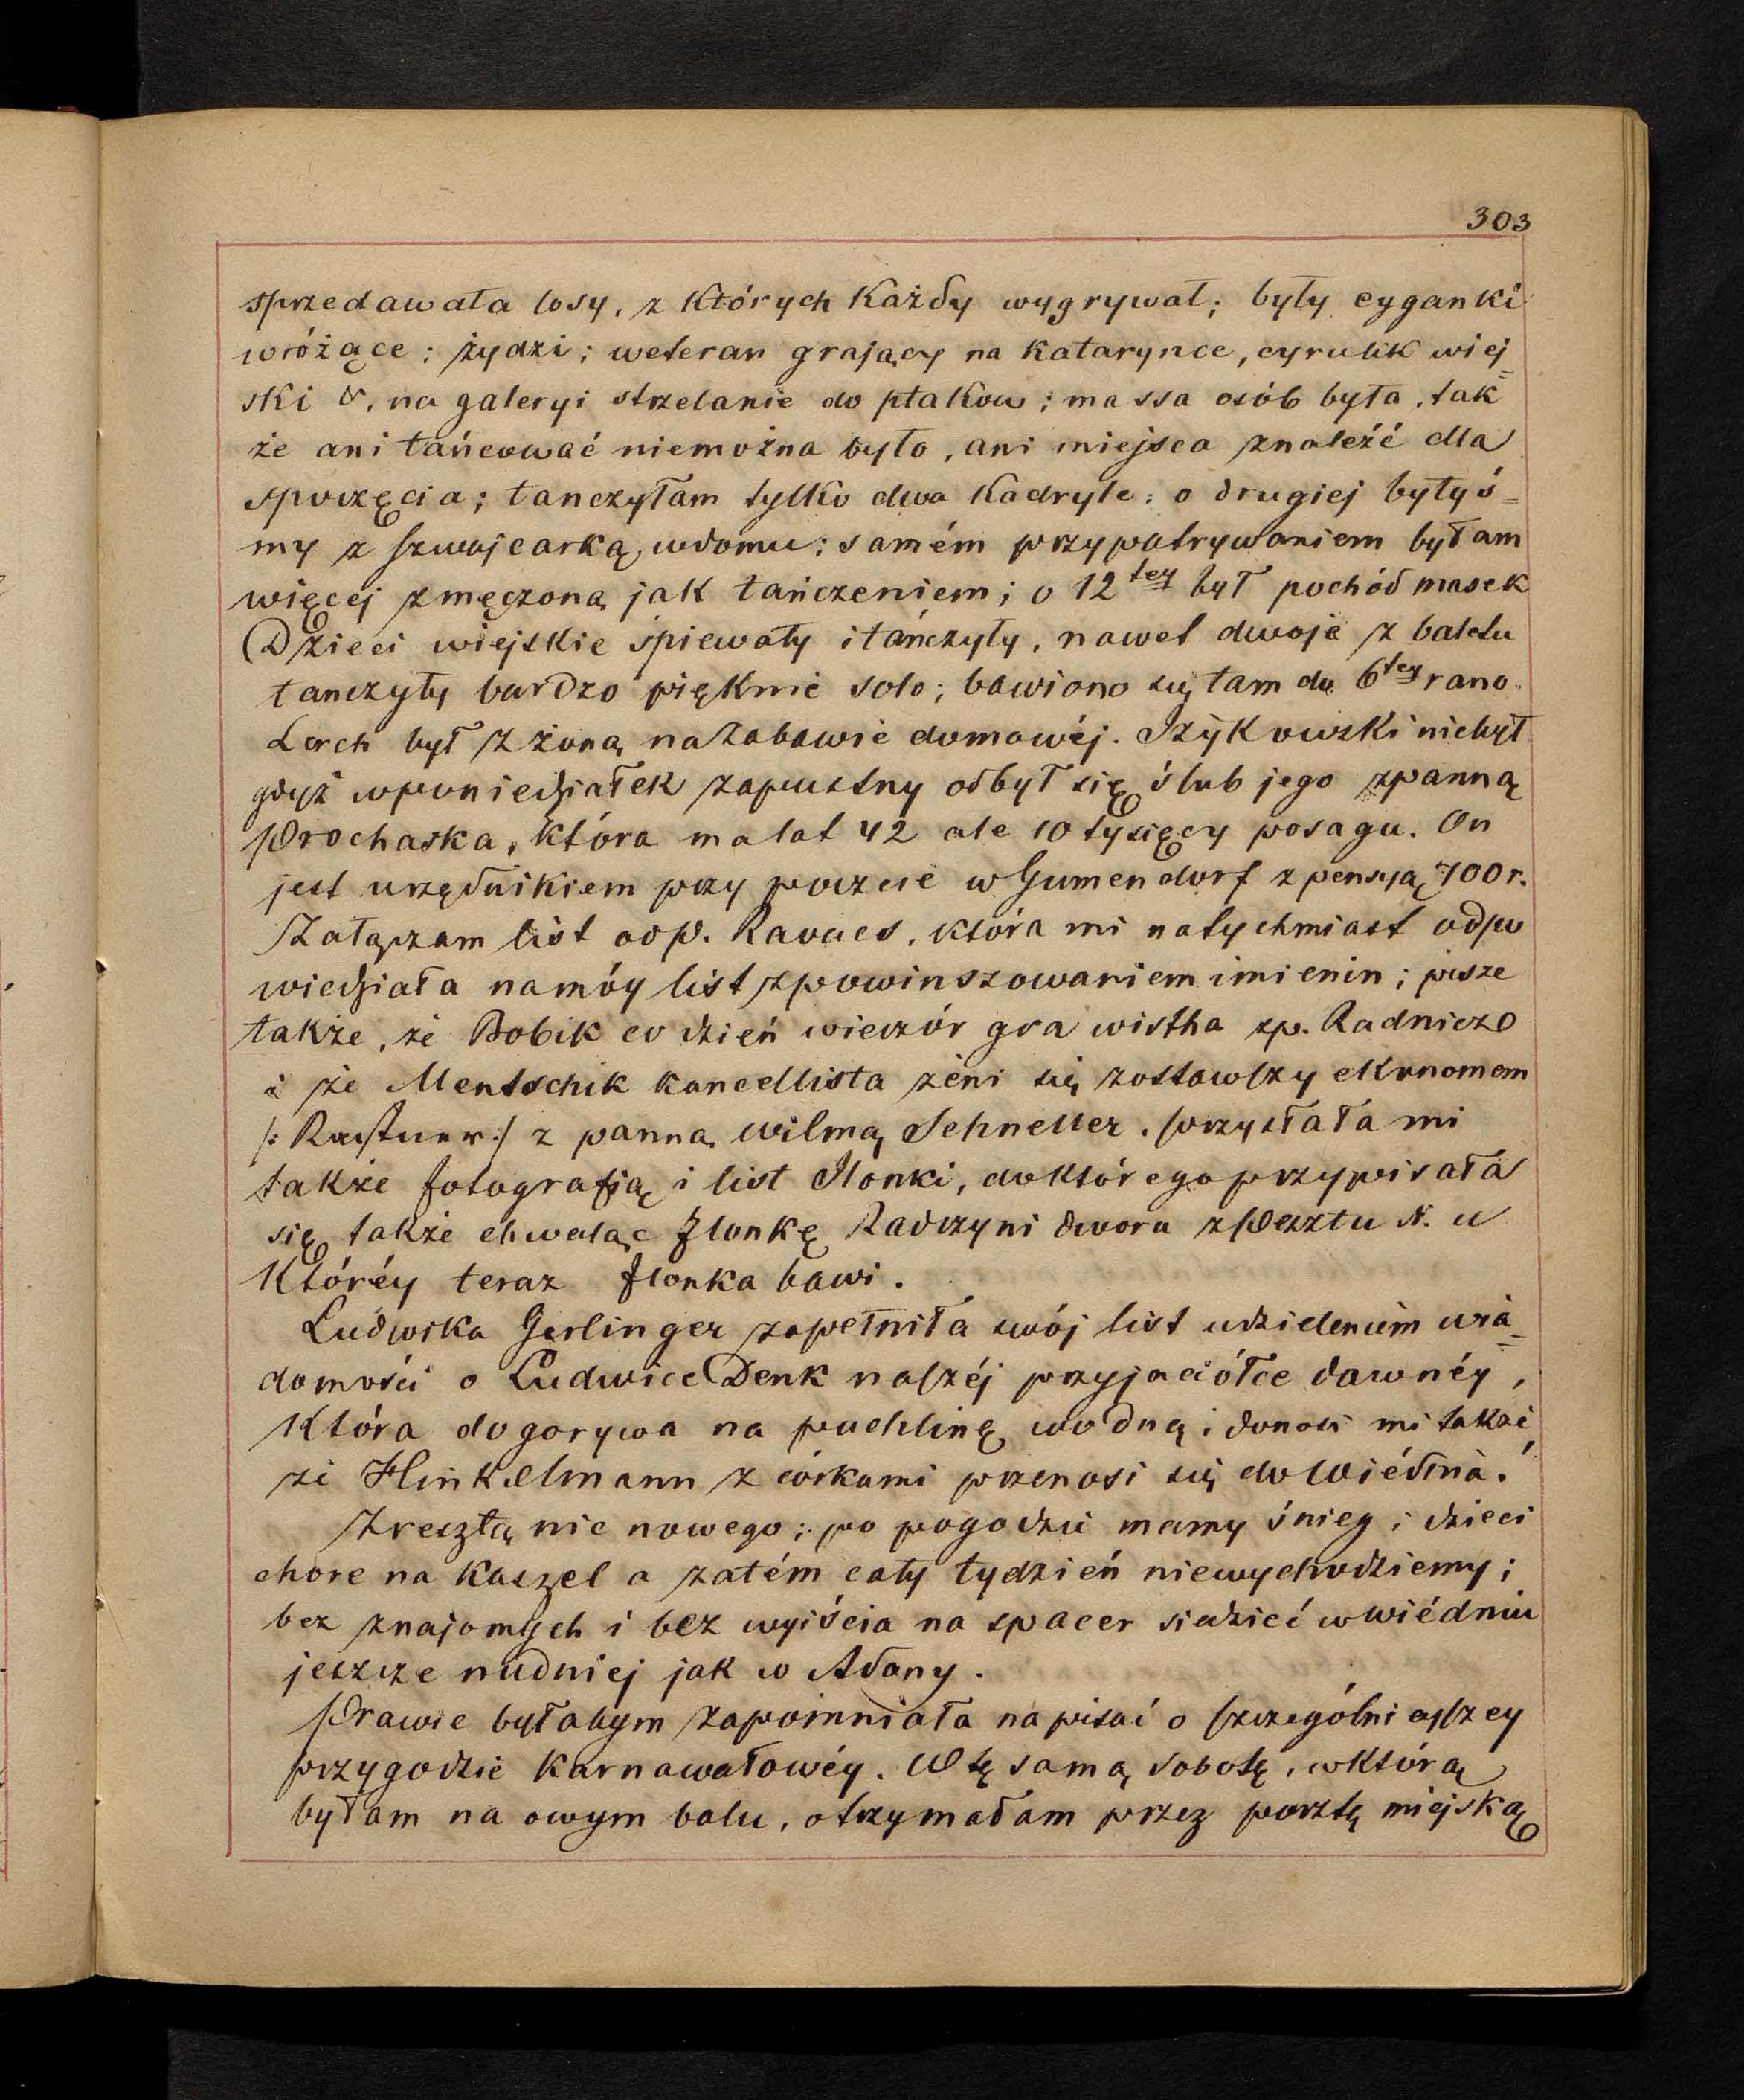 303
sprzedawała losy, z których każdy wygrywał; były cyganki
wróżące; żydzi; weteran grający na katarynce, cyrulik wiej=
ski &, na galeryi strzelanie do ptakow; massa osób była, tak
że ani tańcować niemożna było, ani miejsca znaleźć dla
spoczęcia; tanczyłam tylko dwa kadryle; o drugiej byłyś=
my z szwajcarką wdomu; samém przypatrywaniem byłam
więcej zmęczoną jak tańczeniem; o 12tey był pochód masek
Dzieci wiejskie śpiewały i tańczyły, nawet dwoje z baletu
tanczyły bardzo pięknie solo; bawiono się tam do 6tey rano.
Lerch był z żoną na zabawie domowéj. Szykowski niebył
gdyż wponiedziałek zapustny odbył się ślub jego zpanną
Prochaska, która ma lat 42 ale 10 tysięcy posagu. On
jest urzędnikiem przy poczcie w Gumendorf z pensyą 700 r.
Załączam list od p. Kavacs, która mi natychmiast odpo
wiedziała namóy list zpowinszowaniem imienin; pisze
także, że Bobik co dzień wieczór gra wistha zp. Radniczo
i że Mentschik kancellista żeni się zostawszy ekonomem
/: Kastner :/ z panną Wilmą Schneller. przysłała mi
także fotografią i list Ilonki, doktórego przypisała
się także chwaląc Ilonkę Radczyni dworu zPesztu N. u
Któréy teraz Ilonka bawi.
Ludwika Gerlinger zapełniła swój list udzieleniem wia=
domości o Ludwice Denk naszéj przyjaciółce dawnéy,
Która dogorywa na puchlinę wodną; donosi mi także
że Hinkelmann z córkami przenosi się do Wiédnia.
Zresztą nic nowego; po pogodzie mamy śnieg; dzieci
chore na kaszel a zatém cały tydzień niewychodziemy;
bez znajomych i bez wyiścia na spacer siedzieć wwiédniu
jeszcze nudniej jak w Adony.
Prawie byłabym zapomniała napisać o szczególniejszey
przygodzie karnawałowéy. W tę samą sobotę, wktórą
byłam na owym balu, otrzymałam przez pocztę miejską